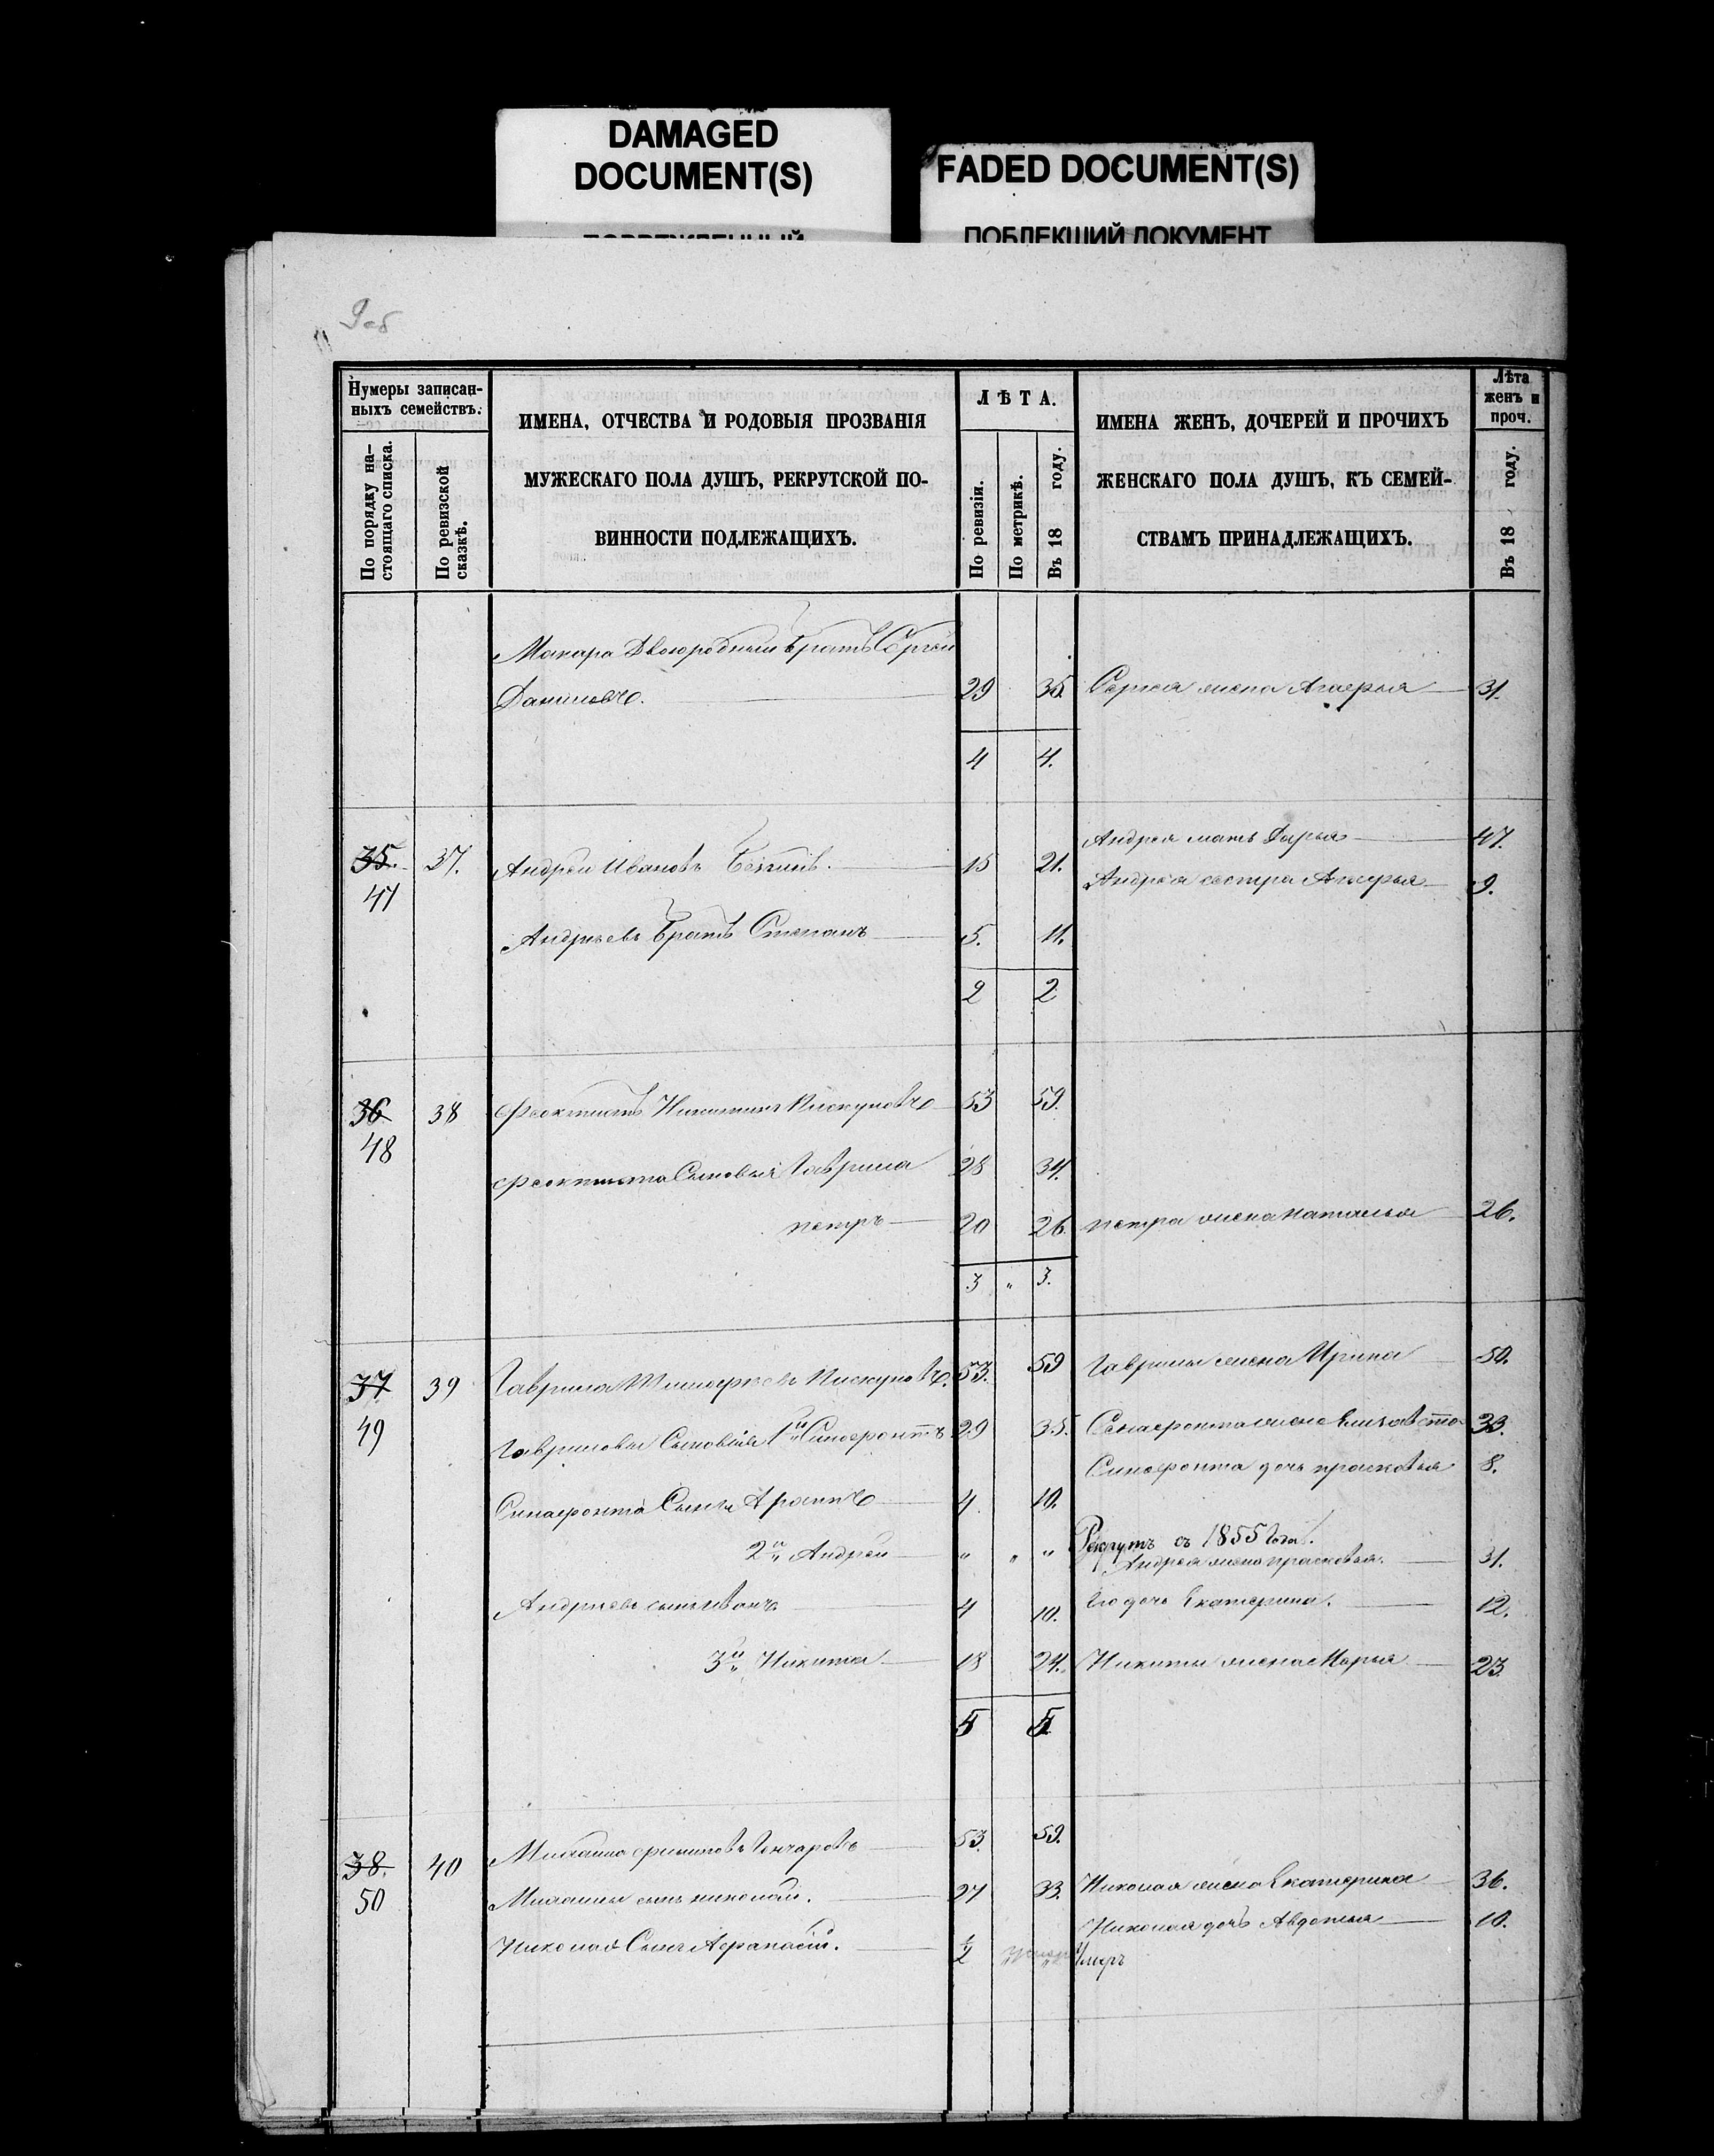 DAMAGED
DOCUMENT(S)
FADED DOCUMENT(S)
ПОБЛЕКШИЙ ДОКУМЕНТ
9об
Нумеры записан-
ныхъ семействъ.
По порядку на-
стоящаго списка.
По ревизской
сказкѣ.
ИМЕНА, ОТЧЕСТВА И РОДОВЫЯ ПРОЗВАНІЯ
МУЖЕСКАГО ПОЛА ДУШЪ, РЕКРУТСКОЙ ПО-
ВИННОСТИ ПОДЛЕЖАЩИХЪ.
ЛѢТА.
По ревизіи.
По метрикѣ.
Въ 18 году.
ИМЕНА ЖЕНЪ, ДОЧЕРЕЙ И ПРОЧИХЪ
ЖЕНСКАГО ПОЛА ДУШЪ, КЪ СЕМЕЙ-
СТВАМЪ ПРИНАДЛЕЖАЩИХЪ.
Лѣта
женъ и
проч.
Въ 18 году.
Макара Двоюродный братъ Сергѣй
Даниловъ. 29 35. Сергея жена Агаферья 31.
4 4.
Андрея мать Дарья 47.
35. 37. Андрей Ивановъ 15 21.
47 Андрея сестра 9.
Андреевъ братъ Степанъ 5. 11.
2 2
36 38 Феоктистъ Никитинъ Пискуновъ 53 59.
48
Феоктиста Сыновья Гаврила 28 34.
петръ 20 26. петра жена Наталья 26.
3 " 3.
37 39 Гаврила Пискуновъ. 53. 59 Гаврилы жена Ирина 50.
49 Гавриловы Сыновья 1й Синофонтъ 29 35. Сенафонта жена Елизавета 33.
Синофонта дочь прасковья 8.
Синафонта Сынъ 4. 10.
Рекрутъ съ 1855 Года.
2й Андрей " " " Андрея жена прасковья. 31.
Андреевъ сынъ иванъ 4 10. Его дочь Екатерина. 12.
3й Никита 18 24. Никиты жена Марья 23.
5 5
38. 40 Гончаровъ 53. 59.
50 сынъ николай. 27 33. Николая жена Екатерина 36.
Николая дочь Авдотья 10.
Николая Сынъ Афанасій. 1/2 " " Умеръ